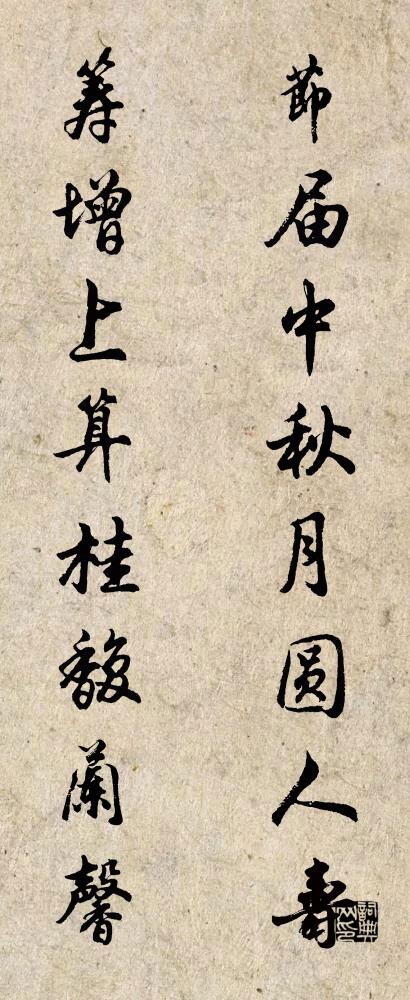 節届中秋月圓人壽
筹增上算桂馥蘭馨